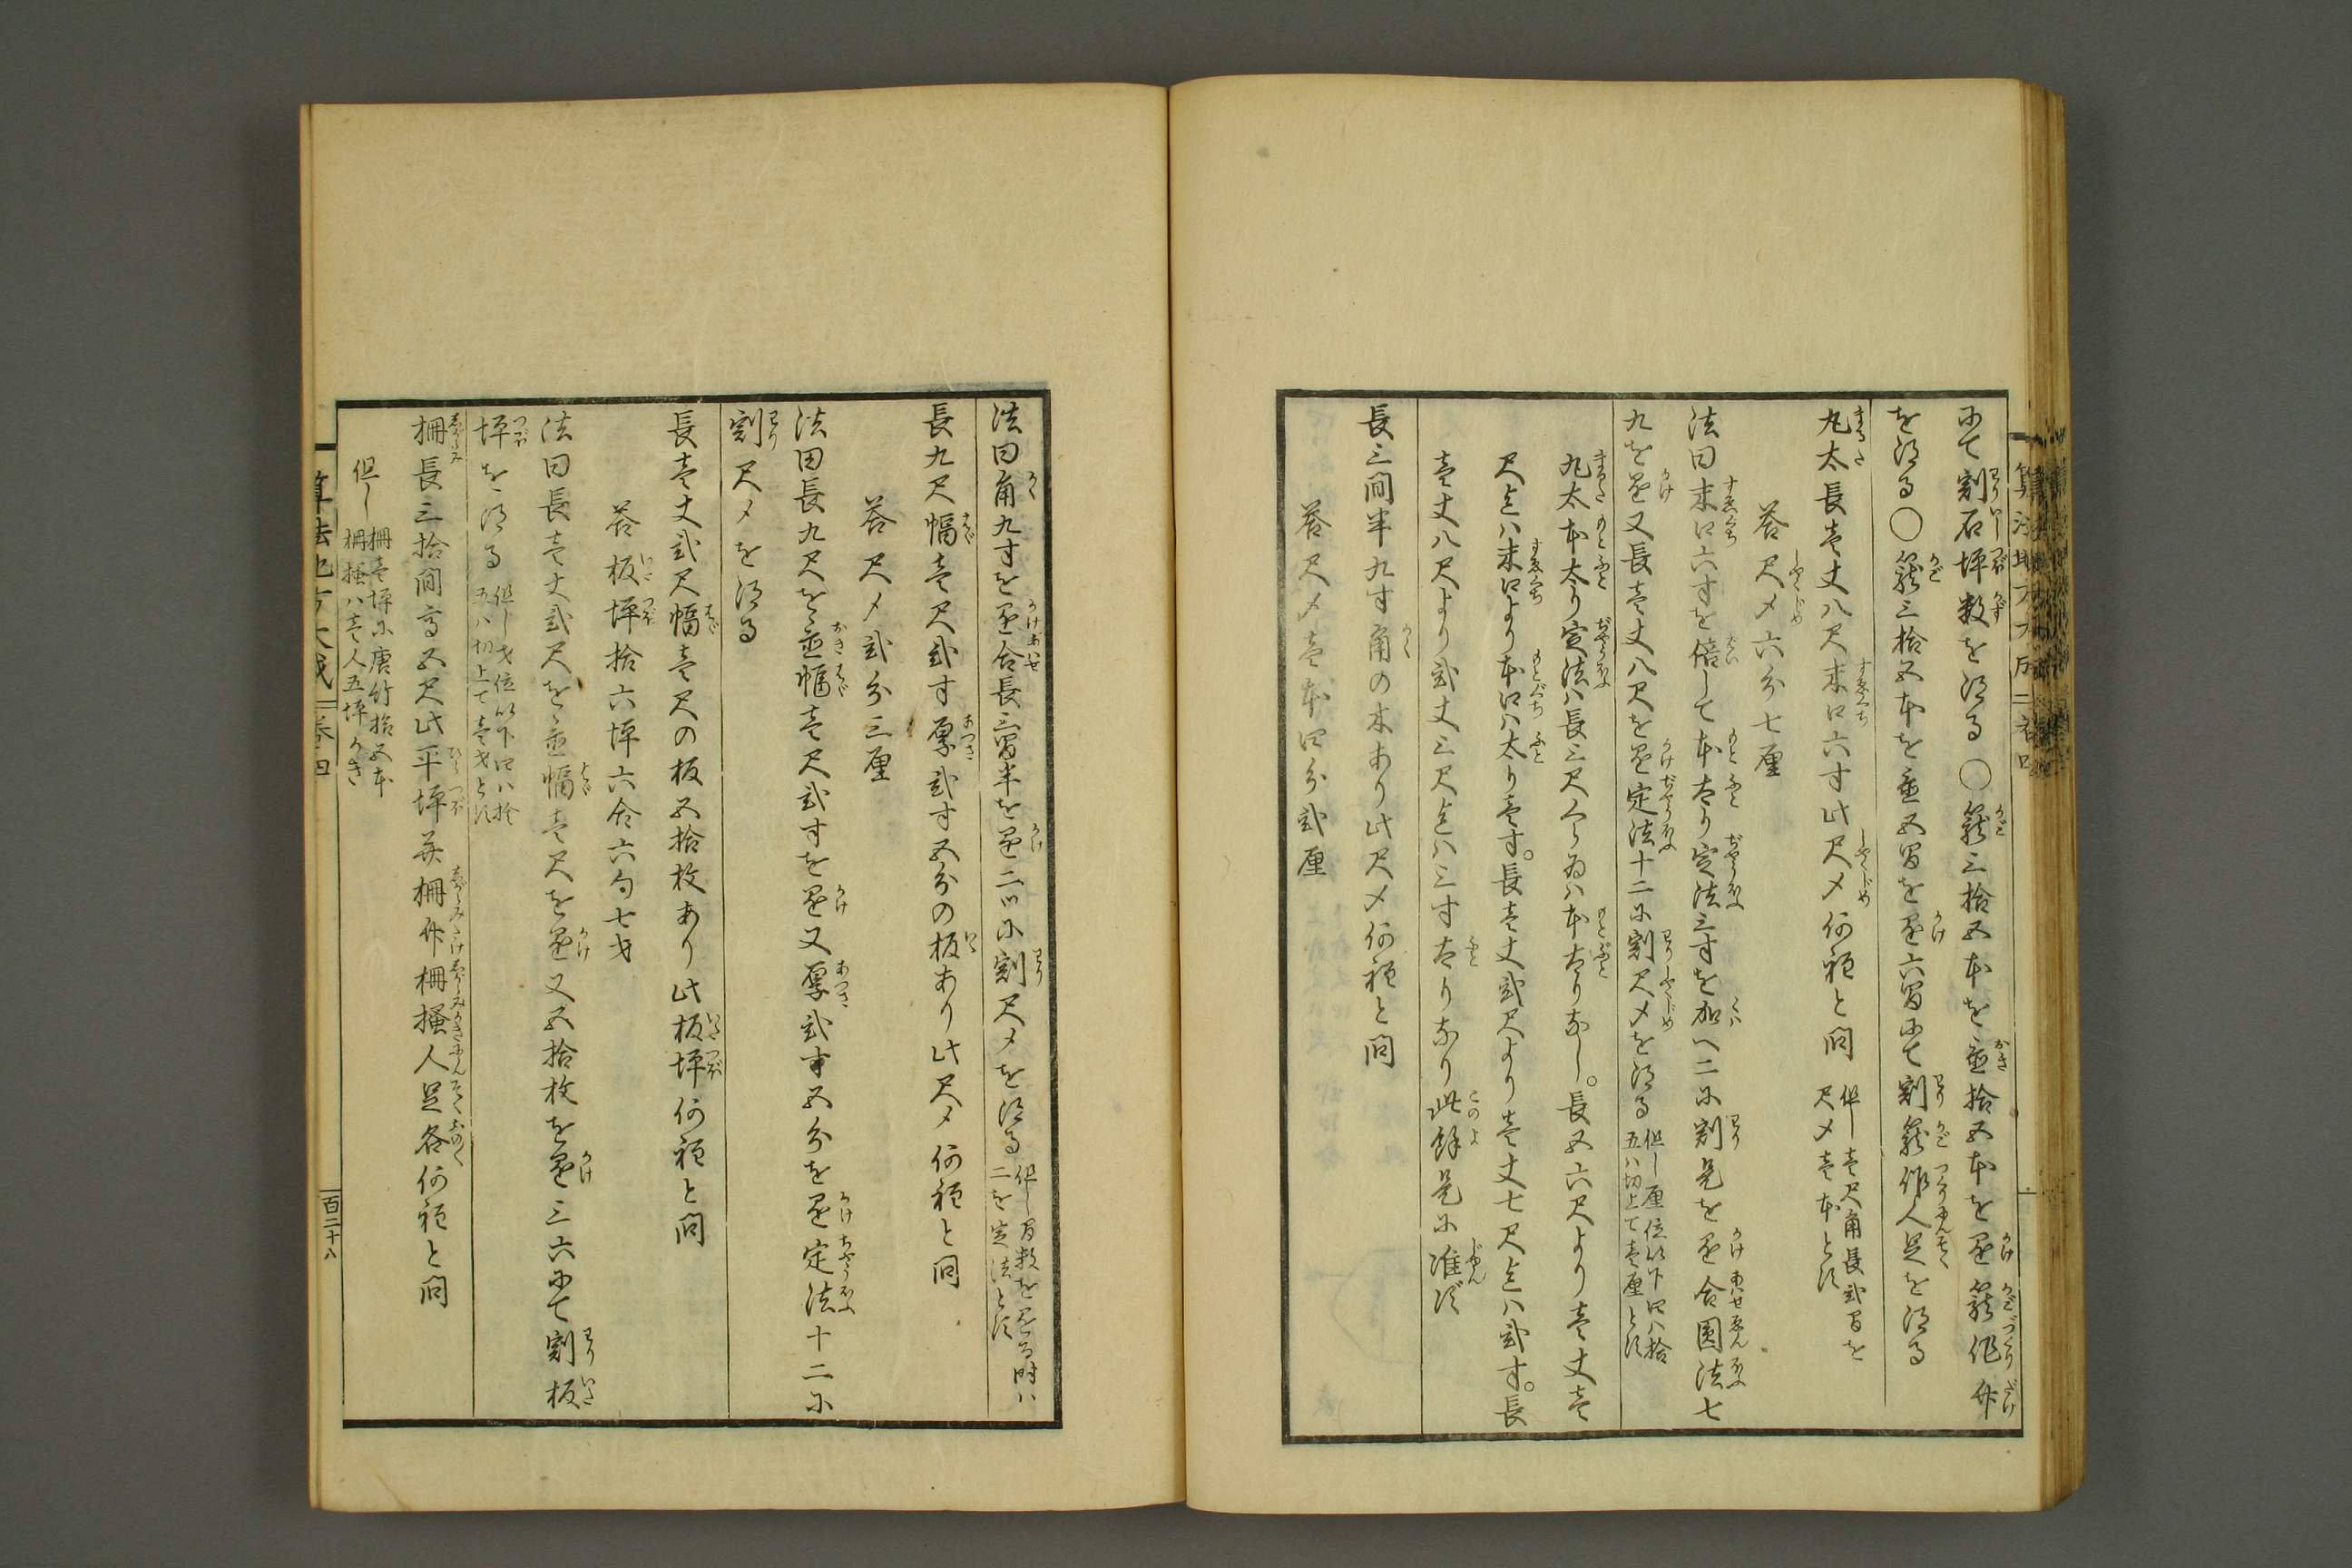 にて割石坪数を得る○籠三拾五本を置拾五本を乗籠作竹
を得る○籠三拾五本を置五間を乗六間にて割籠作人足を得る
丸太長壱丈八尺末口六寸此尺〆何程と問 但し壱尺角長弐間を尺〆壱本とす
答尺〆六分七厘
法曰末口六寸を倍して本太り定法三寸を加へ二に割是を乗合圓法七
九を乗又長壱丈八尺を乗定法十二に割尺〆を得る 但し厘位以下四ハ捨五ハ切上て壱厘とす
丸太本太り定法ハ長三尺くらゐハ本太りなし。長五六尺より壱丈壱
尺迄ハ末口より本口ハ太り壱寸。長壱丈弐尺より壱丈七尺迄ハ弐寸。長
壱丈八尺より弐丈三尺迄ハ三寸太りなり此餘是に准ず
長三間半九寸角の木あり此尺〆何程と問
答尺〆壱本四分弐厘
法曰角九寸を乗合長三間半を乗二ツに割尺〆を得る 但し間数を乗る時ハ二を定法とす
長九尺幅壱尺弐寸厚弐寸五分の板あり此尺〆何程と問
答尺〆弐分三厘
法曰長九尺を置幅壱尺弐寸を乗又厚弐寸五分を乗定法十二に
割尺〆を得る
長壱丈弐尺幅壱尺の板五拾枚あり此板坪何程と問
答板坪拾六坪六合六勺七才
法曰長壱丈弐尺を置幅壱尺を乗又五拾枚を乗三六にて割板
坪を得る 但し才位以下四ハ捨五ハ切上て壱才とす
柵長三拾間高五尺此平坪并柵竹柵掻人足各何程と問
但し 柵壱坪に唐竹拾五本 柵掻ハ壱人五坪かき
算法地方大成 巻四
百二十八